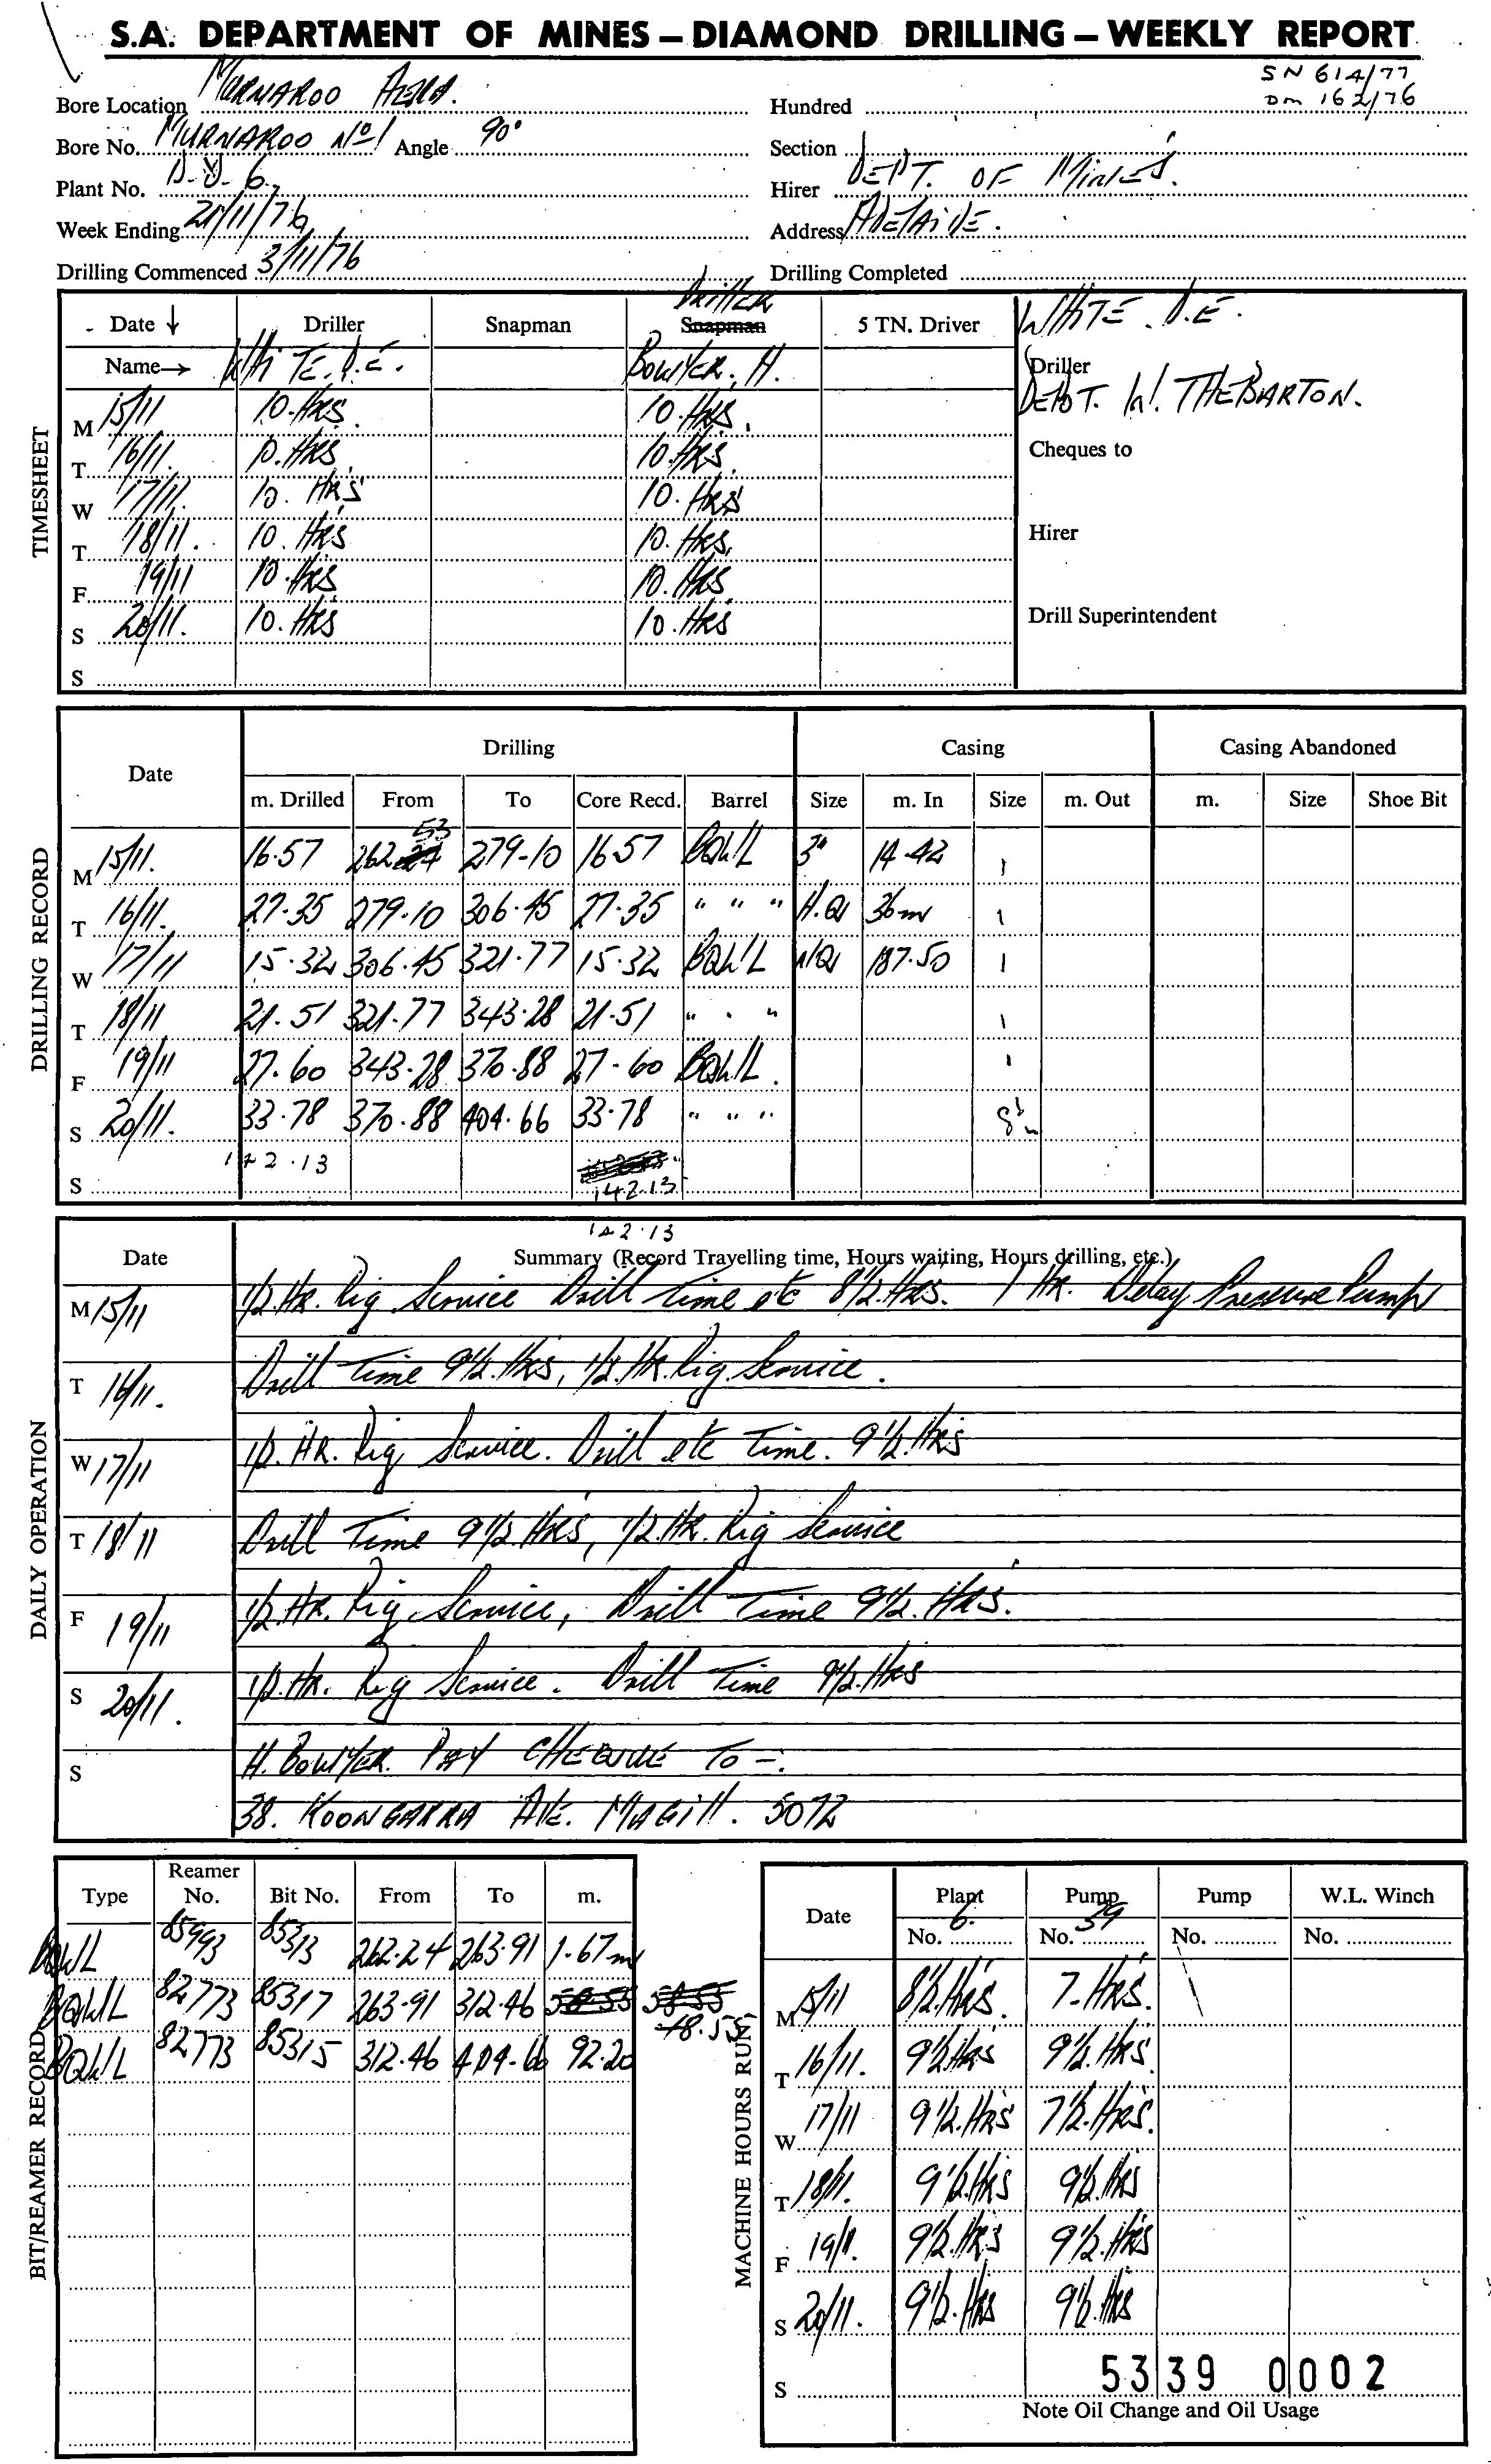 S.A. DEPARTMENT OF MINES – DIAMOND DRILLING – WEEKLY REPORT
SN 614/77
Dm 162/76
Bore Location MURNAROO AREA. Hundred
Bore No. MURNAROO No 1 Angle 90° Section
Plant No. 6. Hirer DEPT. OF MINES.
Week Ending 21/11/76 Address ADELAIDE.
Drilling Commenced 3/11/76 Drilling Completed
TIMESHEET
Driller
Date ↓ Driller Snapman Snapman 5 TN. Driver WHITE. D.E.
Name→ WHITE. D.E. BOWYER. H. Driller
DEPOT. W. THEBARTON.
M 15/11 10.HRS. 10.HRS.
T 16/11. 10.HRS. 10.HRS. Cheques to
W 17/11. 10. HRS 10. HRS
T 18/11. 10. HRS 10. HRS. Hirer
F 19/11 10.HRS 10.HRS
S 20/11. 10. HRS 10. HRS Drill Superintendent
S
DRILLING RECORD
Date Drilling Casing Casing Abandoned
m. Drilled From To Core Recd. Barrel Size m. In Size m. Out m. Size Shoe Bit
53
M 15/11. 16.57 262 279-10 16.57 BQW/L 3" 14.42
T 16/11. 27.35 279.10 306.45 27.35 " " " H.Q 36m
W 17/11 15.32 306.45 321.77 15.32 BQW/L NQ 187.50
T 18/11 21.51 321.77 343.28 21.51 " " "
F 19/11 27.60 343.28 370.88 27.60 BQW/L.
S 20/11. 33.78 370.88 404.66 33.78 " " "
142.13
S 142.13
142.13
DAILY OPERATION
Date Summary (Record Travelling time, Hours waiting, Hours drilling, etc.)
M 15/11 1/2 Hr. Rig Service Drill time etc 8 1/2 Hrs. 1 Hr. Delay Pressure Pump
T 16/11. Drill time 9 1/2 Hrs, 1/2 Hr. Rig Service.
W 17/11 1/2. HR. Rig Service. Drill etc Time. 9 1/2 Hrs
T 18/11 Drill Time 9 1/2 Hrs, 1/2 Hr. Rig Service
F 19/11 1/2 Hr. Rig Service, Drill Time 9 1/2. Hrs.
S 20/11. 1/2 Hr. Rig Service. Drill Time 9 1/2. Hrs
S H. BOWYER. PAY CHEQUE TO –:
38. KOONGARRA AVE. MAGILL. 5072
BIT/REAMER RECORD
Type Reamer No. Bit No. From To m.
BQW/L 85993 85313 262.24 263.91 1.67m
BQW/L 82773 85317 263.91 312.46 58.55 58.55
48.55
BQW/L 82773 85315 312.46 404.66 92.20
MACHINE HOURS RUN
Date Plant Pump Pump W.L. Winch
No. 6. No. 39 No. No.
M 15/11 8 1/2 Hrs. 7. Hrs.
T 16/11. 9 1/2 Hrs 9 1/2. Hrs.
W 17/11 9 1/2. Hrs 7 1/2. Hrs.
T 18/11. 9 1/2. Hrs 9 1/2. Hrs
F 19/11. 9 1/2. Hrs 9 1/2. Hrs
S 20/11. 9 1/2. Hrs 9 1/2. Hrs
5339 0002
S
Note Oil Change and Oil Usage